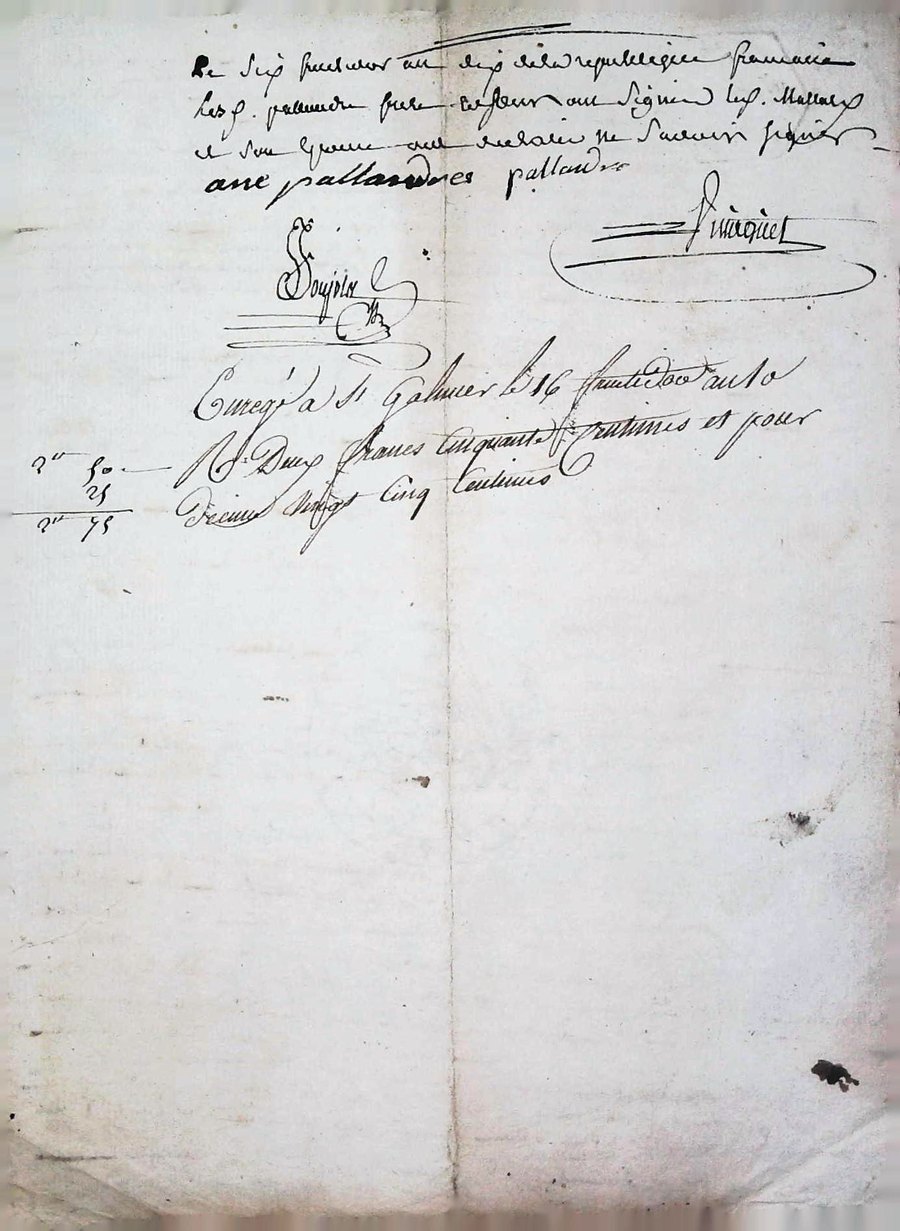 Le six fructidor an dix de la republique francaise
Les d. pallandre frere et soeur ont signé les d.
et son epouse ont declaré ne savoir signer
ane pallandres pallandre
Enregé a St Galmier le 16 fructidor an 10
R. Deux francs cinquante centimes et pour
2 50
décime vingt cinq centimes
25
2 75